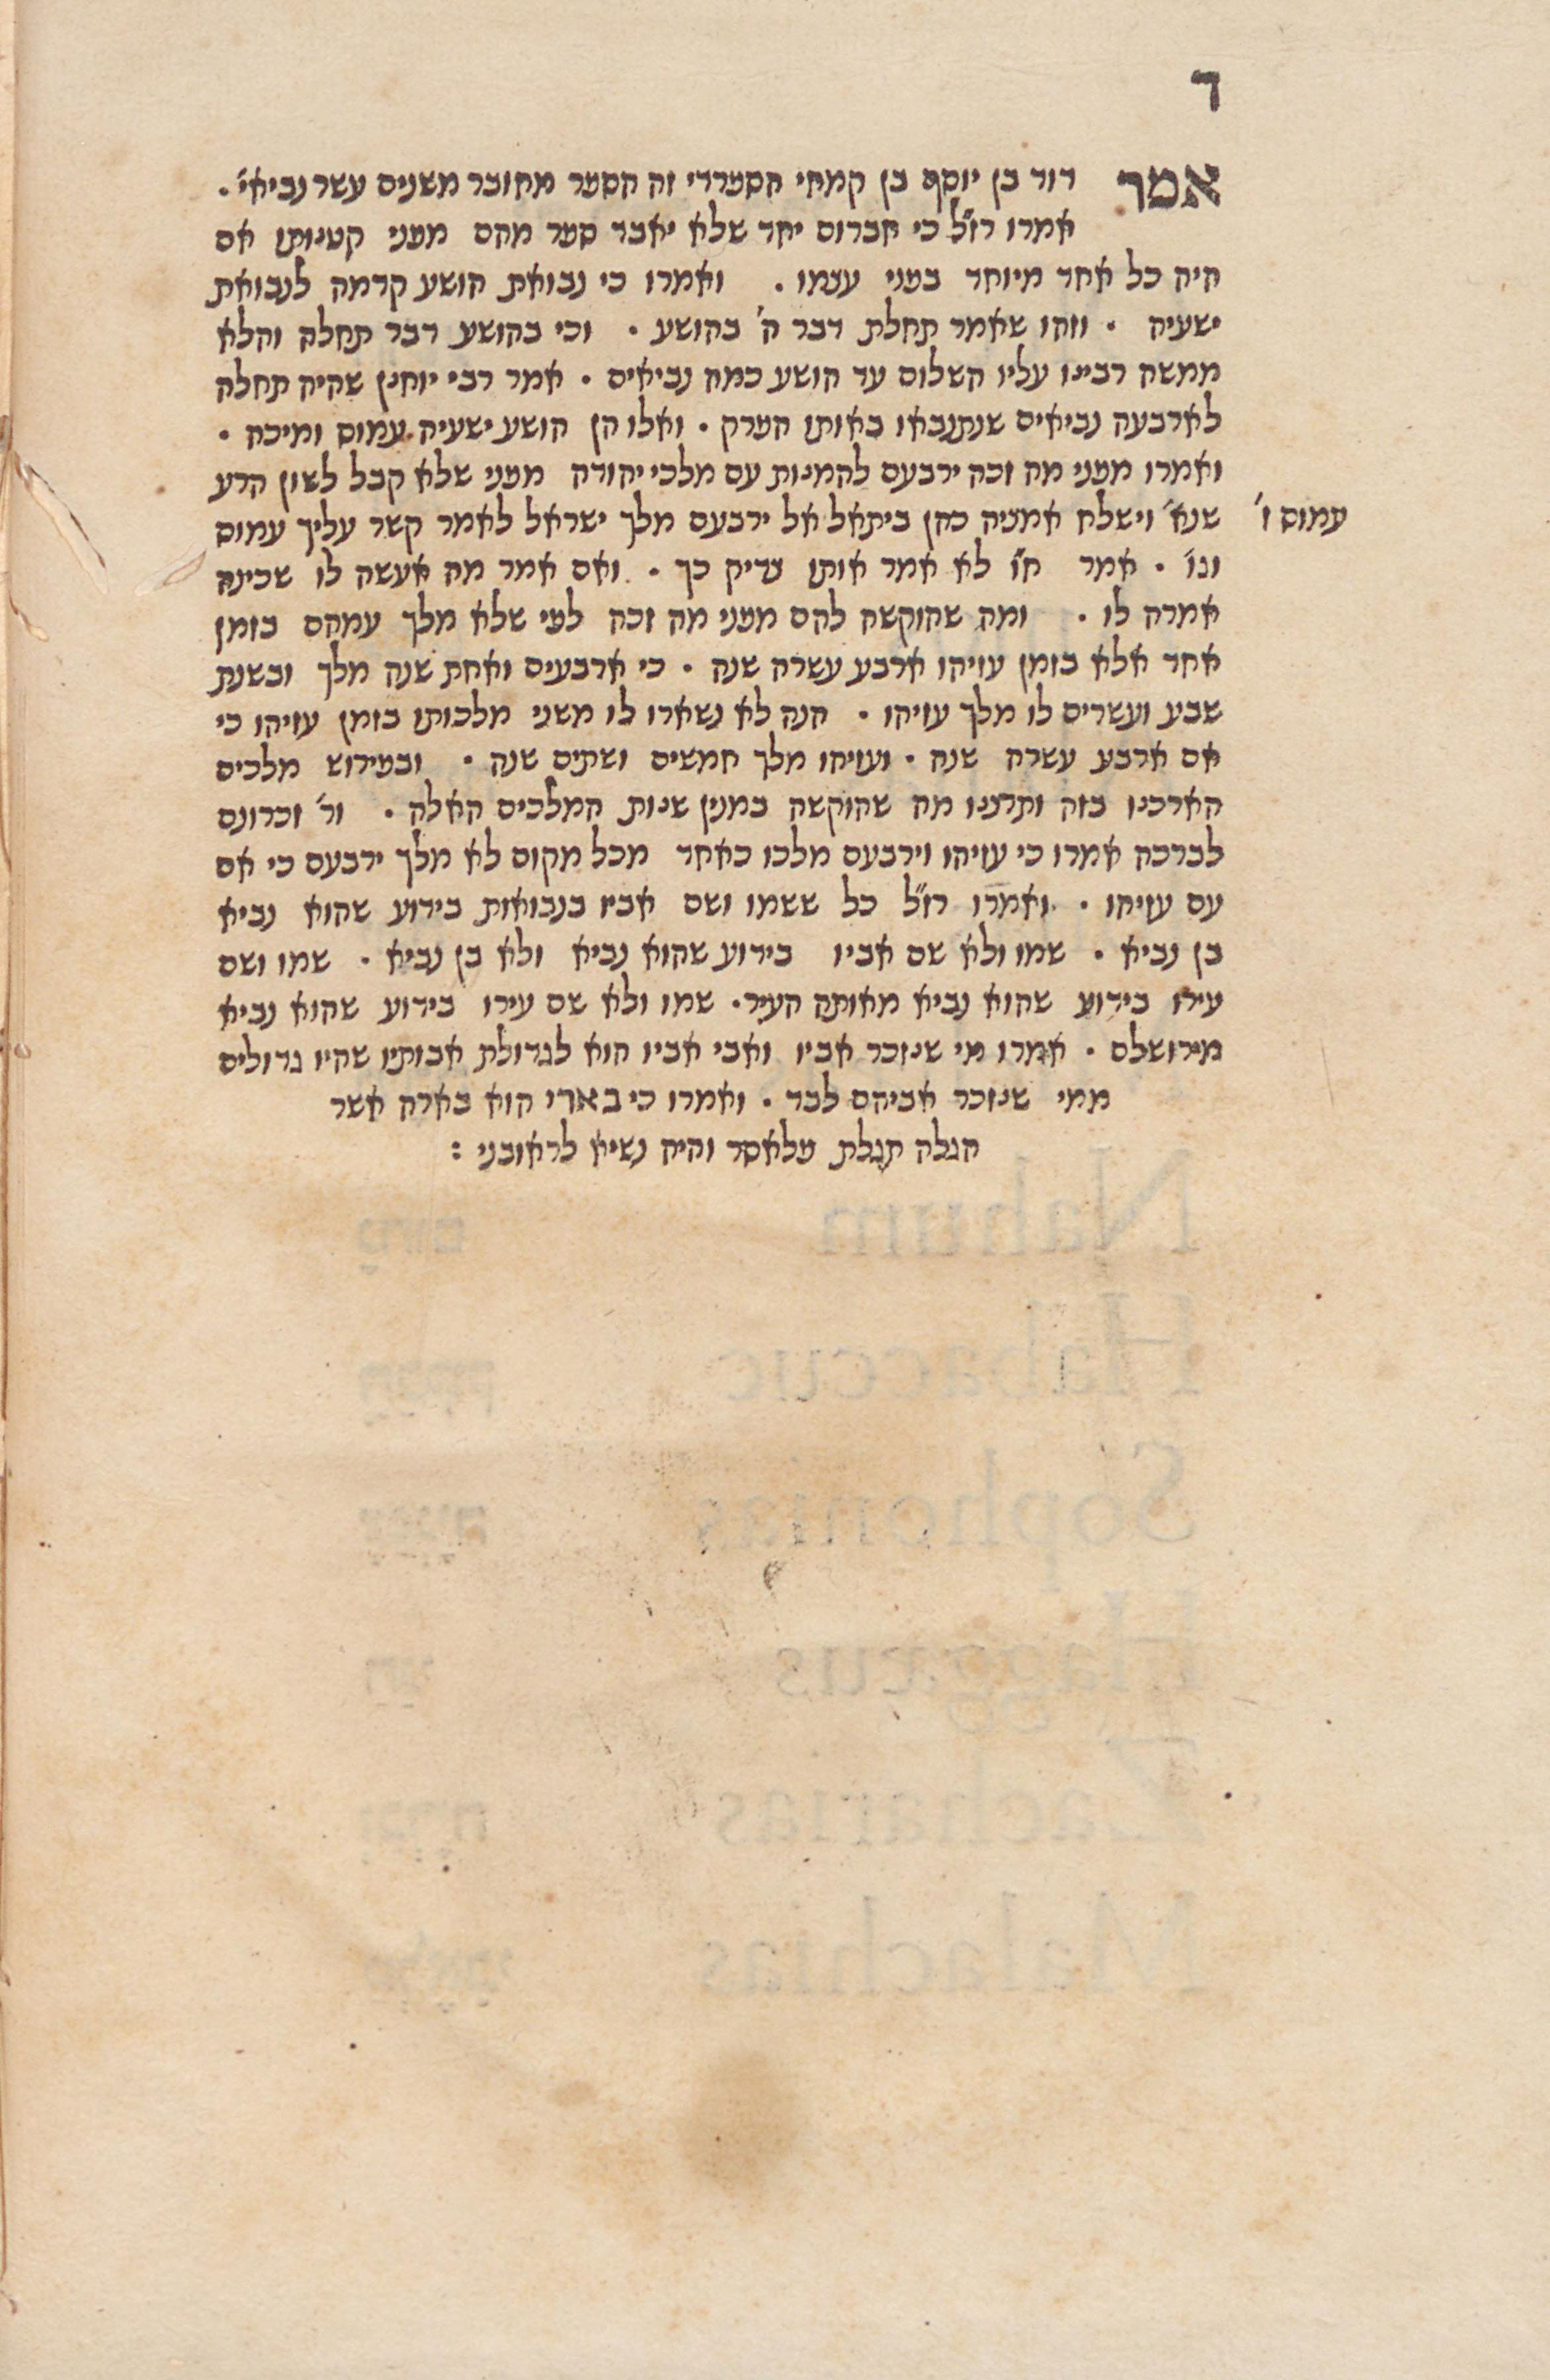 ד
אמר דוד בן יוסף בן קמחי הספרדי זה הספר מחובר משנים עשר נביאי׳ .
אמרו רז״ל כי חברום יחד שלא יאבד ספר מהם מפני קטנותו אם
היה כל אחד מיוחד בפני עצמו . ואמרו כי נבואת הושע קדמה לנבואת
ישעיה . וזהו שאמר תחלת דבר ה׳ בהושע . וכי בהושע דבר תחלה והלא
ממשה רבינו עליו השלום עד הושע כמה נביאים . אמר רבי יוחנן שהיה תחלה
לארבעה נביאים שנתנבאו באותו הפרק . ואלו הן הושע ישעיה עמוס ומיכה .
ואמרו מפני מה זכה ירבעם להמנות עם מלכי יהודה מפני שלא קבל לשון הרע
עמוס ז׳
שנא׳ וישלח אמציה כהן ביתאל אל ירבעם מלך ישראל לאמר קשר עליך עמוס
וגו׳ . אמר ח״ו לא אמר אותו צדיק כך . ואם אמר מה אעשה לו שכינה
אמרה לו . ומה שהוקשה להם מפני מה זכה לפי שלא מלך עמהם בזמן
אחד אלא בזמן עזיהו ארבע עשרה שנה . כי ארבעים ואחת שנה מלך ובשנת
שבע ועשרים לו מלך עזיהו . הנה לא נשארו לו משני מלכותו בזמן עזיהו כי
אם ארבע עשרה שנה . ועזיהו מלך חמשים ושתים שנה . ובפירוש מלכים
הארכנו בזה ותרצנו מה שהוקשה במנין שנות המלכים האלה . ור׳ זכרונם
לברכה אמרו כי עזיהו וירבעם מלכו כאחד מכל מקום לא מלך ירבעם כי אם
עם עזיהו . ואמרו רז״ל כל ששמו ושם אביו בנבואות בידוע שהוא נביא
בן נביא . שמו ולא שם אביו בידוע שהוא נביא ולא בן נביא . שמו ושם
עירו בידוע שהוא נביא מאותה העיר . שמו ולא שם עירו בידוע שהוא נביא
מירושלם . אמרו מי שנזכר אביו ואבי אביו הוא לגדולת אבותיו שהיו גדולים
ממי שנזכר אביהם לבד . ואמרו כי בארי הוא בארה אשר
הגלה תגלת פלאסר והיה נשיא לראובני :